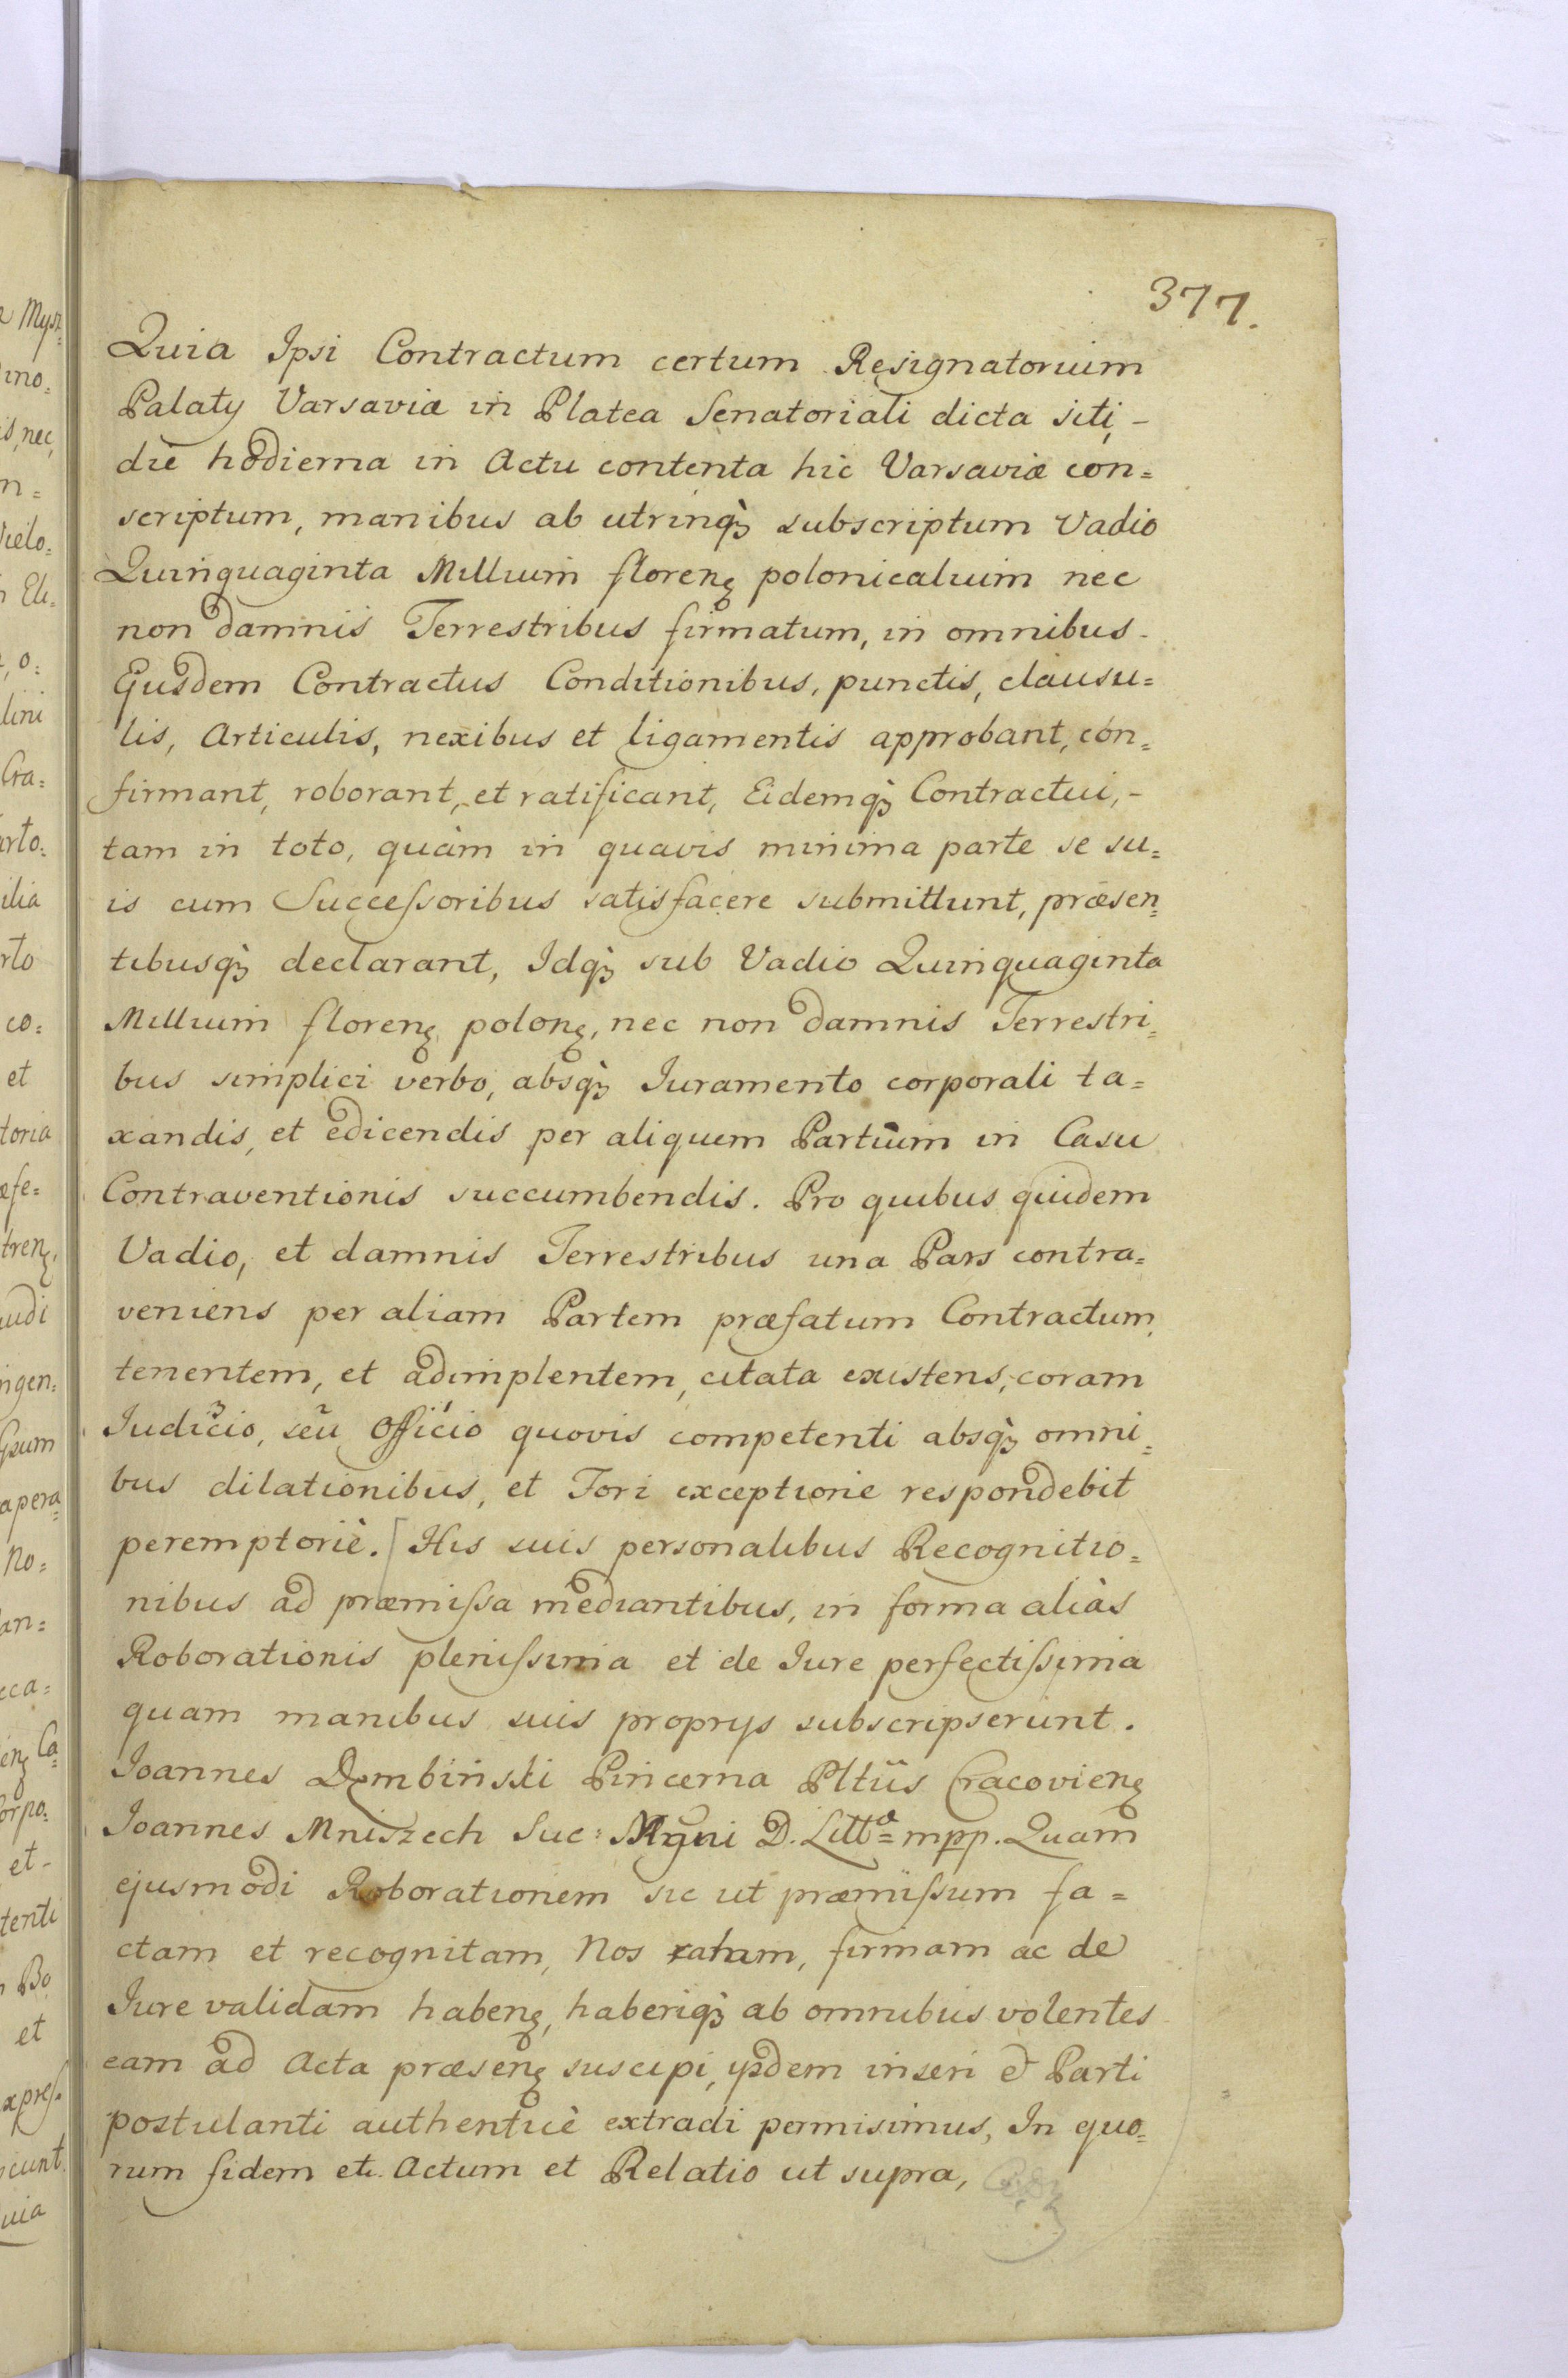 377.
Quia Ipsi Contractum certum Resignatorium
Palaty Varsaviæ in Platea Senatoriali dicta siti, -
die hodierna in Actu contenta hic Varsaviæ con=
scriptum, manibus ab utrinq̀ꝫ subscriptum Vadio
Quinquaginta Millium florenꝫ polonicalium nec
non damnis Terrestribus firmatum, in omnibus -
Ejusdem Contractus Conditionibus, punctis, clausu=
lis, Articulis, nexibus et ligamentis approbant, con=
firmant, roborant, et ratificant, Eidemq̀ꝫ Contractui, -
tam in toto, quàm in quavis minima parte se su=
is cum Succeſsoribus satisfacere submittunt, præsen=
tibusq̀ꝫ declarant, Idq̀ꝫ sub Vadio Quinquaginta
Millium florenꝫ polonꝫ, nec non damnis Terrestri=
bus simplici verbo, absq̀ꝫ Iuramento corporali ta=
xandis, et edicendis per aliquem Partium in Casu
Contraventionis succumbendis. Pro quibus quidem
Vadio, et damnis Terrestribus una Pars contra=
veniens per aliam Partem præfatum Contractum
tenentem, et adimplentem, citata existens, coram
Iudicio, seu Officio quovis competenti absq̀ꝫ omni=
bus dilationibus, et Fori exceptione respondebit
peremptoriè. [His suis personalibus Recognitio=
nibus ad præmiſsa mediantibus, in forma aliàs
Roborationis pleniſsima et de Iure perfectiſsima
quam manibus suis proprys subscripserunt.
Ioannes Dembinski Pincerna Pltüs Cracovienꝫ
Ioannes Mniszech Suc: Mgni D. Littᵃ= mpp. Quam
ejusmodi Roborationem sic ut præmiſsum fa=
ctam et recognitam, Nos ratam, firmam ac de
Iure validam habenꝫ, haberiq̀ꝫ ab omnibus volentes
eam ad Acta præsenꝫ suscipi, ysdem inseri & Parti
postulanti authenticè extradi permisimus, In quo=
rum fidem etc. Actum et Relatio ut supra,